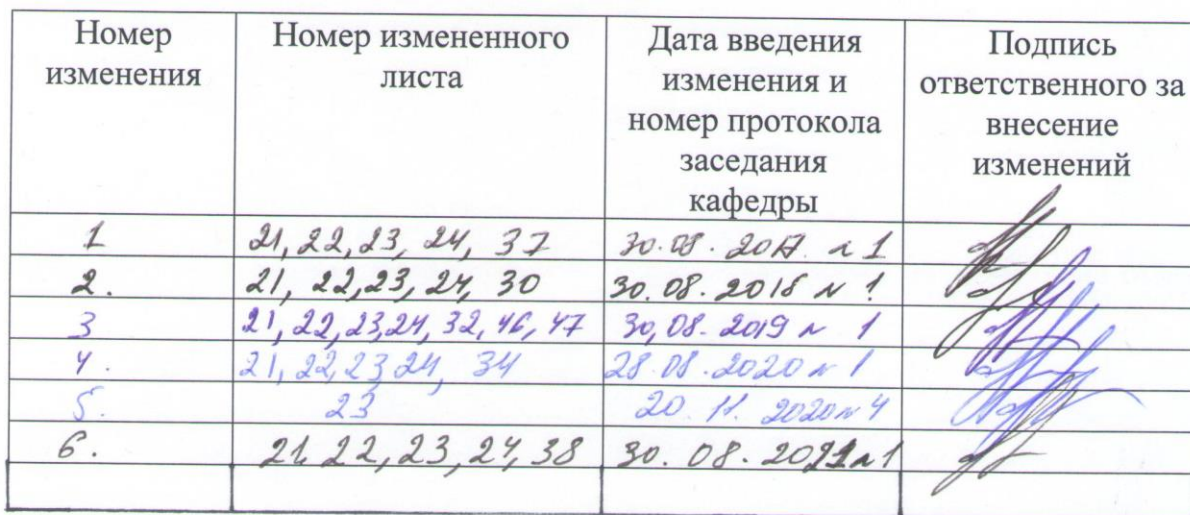 Номер изменения
Номер измененного листа
Дата введения изменения и номер протокола заседания кафедры
Подпись ответственного за внесение изменений
1 21, 22, 23, 24, 37 30.08.2017 n 1
2. 21, 22, 23, 24, 30 30.08.2018 n 1
3 21, 22, 23, 24, 32, 46, 47 30,08.2019 n 1
4. 21, 22, 23, 24, 34 28.08.2020 n 1
5. 23 20.11.2020 n 4
6. 21, 22, 23, 24, 38 30.08.2021 n 1